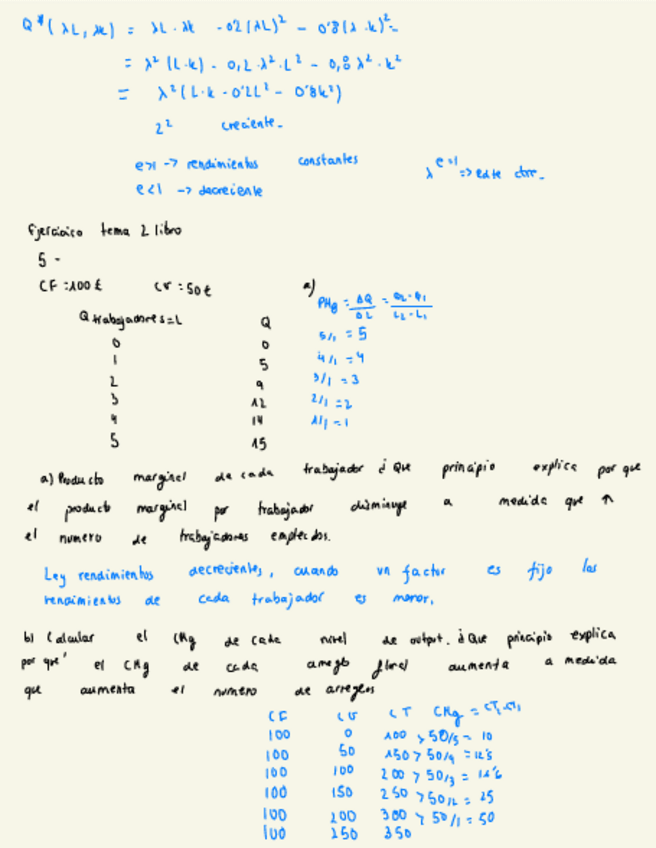 Q*(λL, λk) = λL · λk - 0'2(λL)² - 0'8(λ·k)² =
= λ²(L·k) - 0,2·λ²·L² - 0,8λ²·k²
= λ²(L·k - 0'2L² - 0'8k²)
2² creciente.
e>1 -> rendimientos constantes
e<1 -> decreciente
λ e=1 =>
Ejercicico tema 2 libro
5 -
CF =100€ CV =50€ a) PMg = ΔQ/ΔL = Q2-Q1/L2-L1
Q trabajadores=L Q
0 0 5/1 = 5
1 5 4/1 = 4
2 9 3/1 = 3
3 12 2/1 = 2
4 14 1/1 = 1
5 15
a) Producto marginal de cada trabajador ¿Que principio explica por que
el producto marginal por trabajador disminuye a medida que ↑
el numero de trabajadores empleados.
Ley rendimientos decrecientes, cuando un factor es fijo los
rendimientos de cada trabajador es menor.
b) Calcular el CMg de cada nivel de output. ¿Que principio explica
por que' el CMg de cada arreglo floral aumenta a medida
que aumenta el numero de arreglos
CF CV CT CMg = CT2-CT1
100 0 100 > 50/5 = 10
100 50 150 > 50/4 = 12'5
100 100 200 > 50/3 = 16'6
100 150 250 > 50/2 = 25
100 200 300 > 50/1 = 50
100 250 350